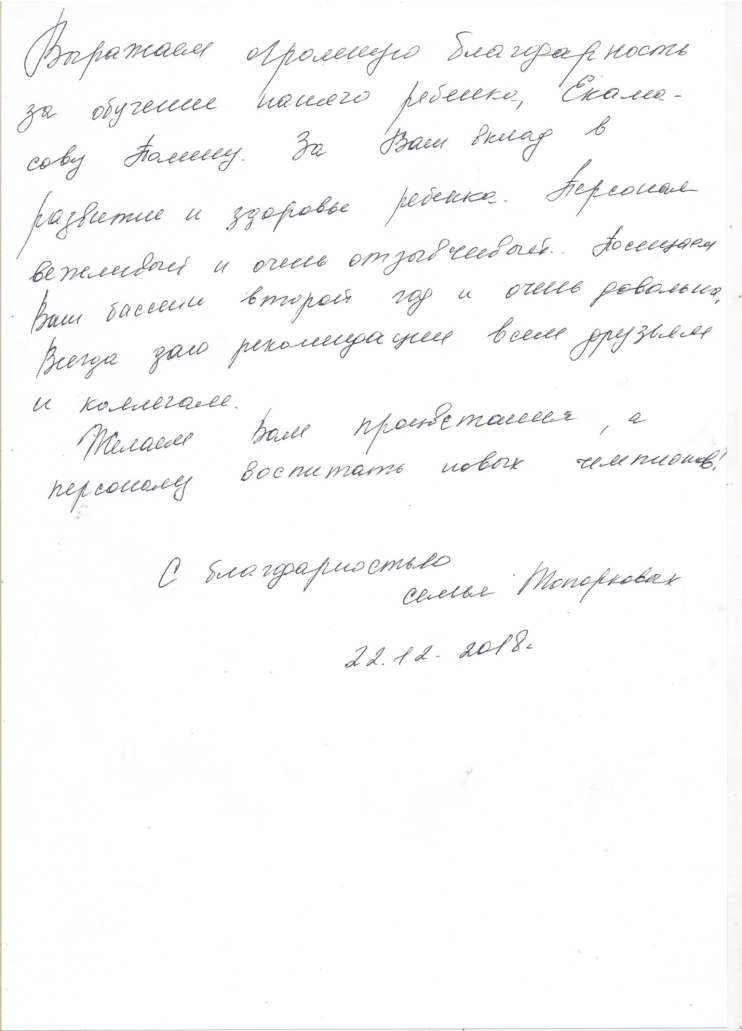 Выражаем огромную благодарность
за обучение нашего ребенка, Екама-
сову Полину. За Ваш вклад в
развитие и здоровье ребенка. Персонал
вежливый и очень отзывчивый. Посещаем
Ваш бассейн второй год и очень довольны,
Всегда даю рекомендации всем друзьям
и коллегам.
Желаем Вам процветания, а
персоналу воспитать новых чемпионов!
С благодарностью
семья Топорковых
22.12.2018г.